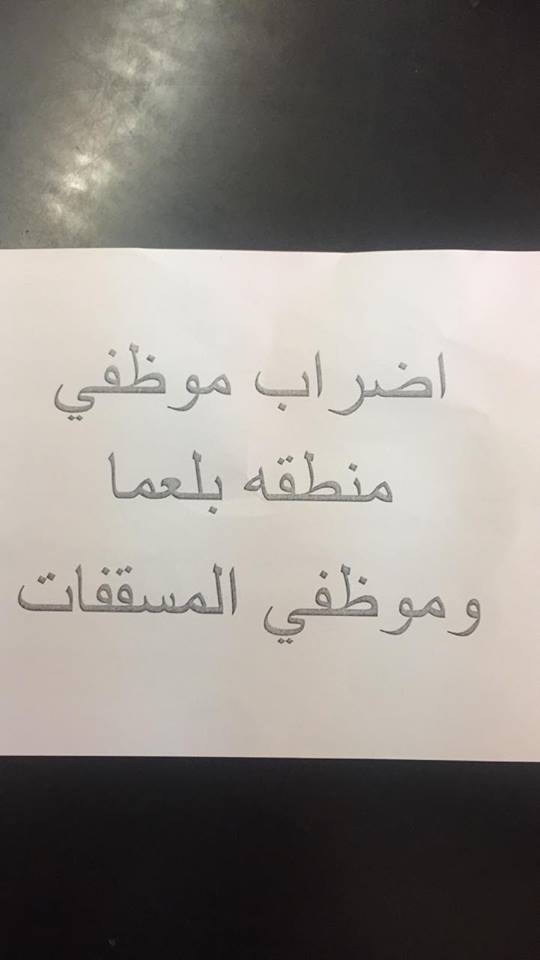 اضراب موظفي
منطقه بلعما
وموظفي المسقفات